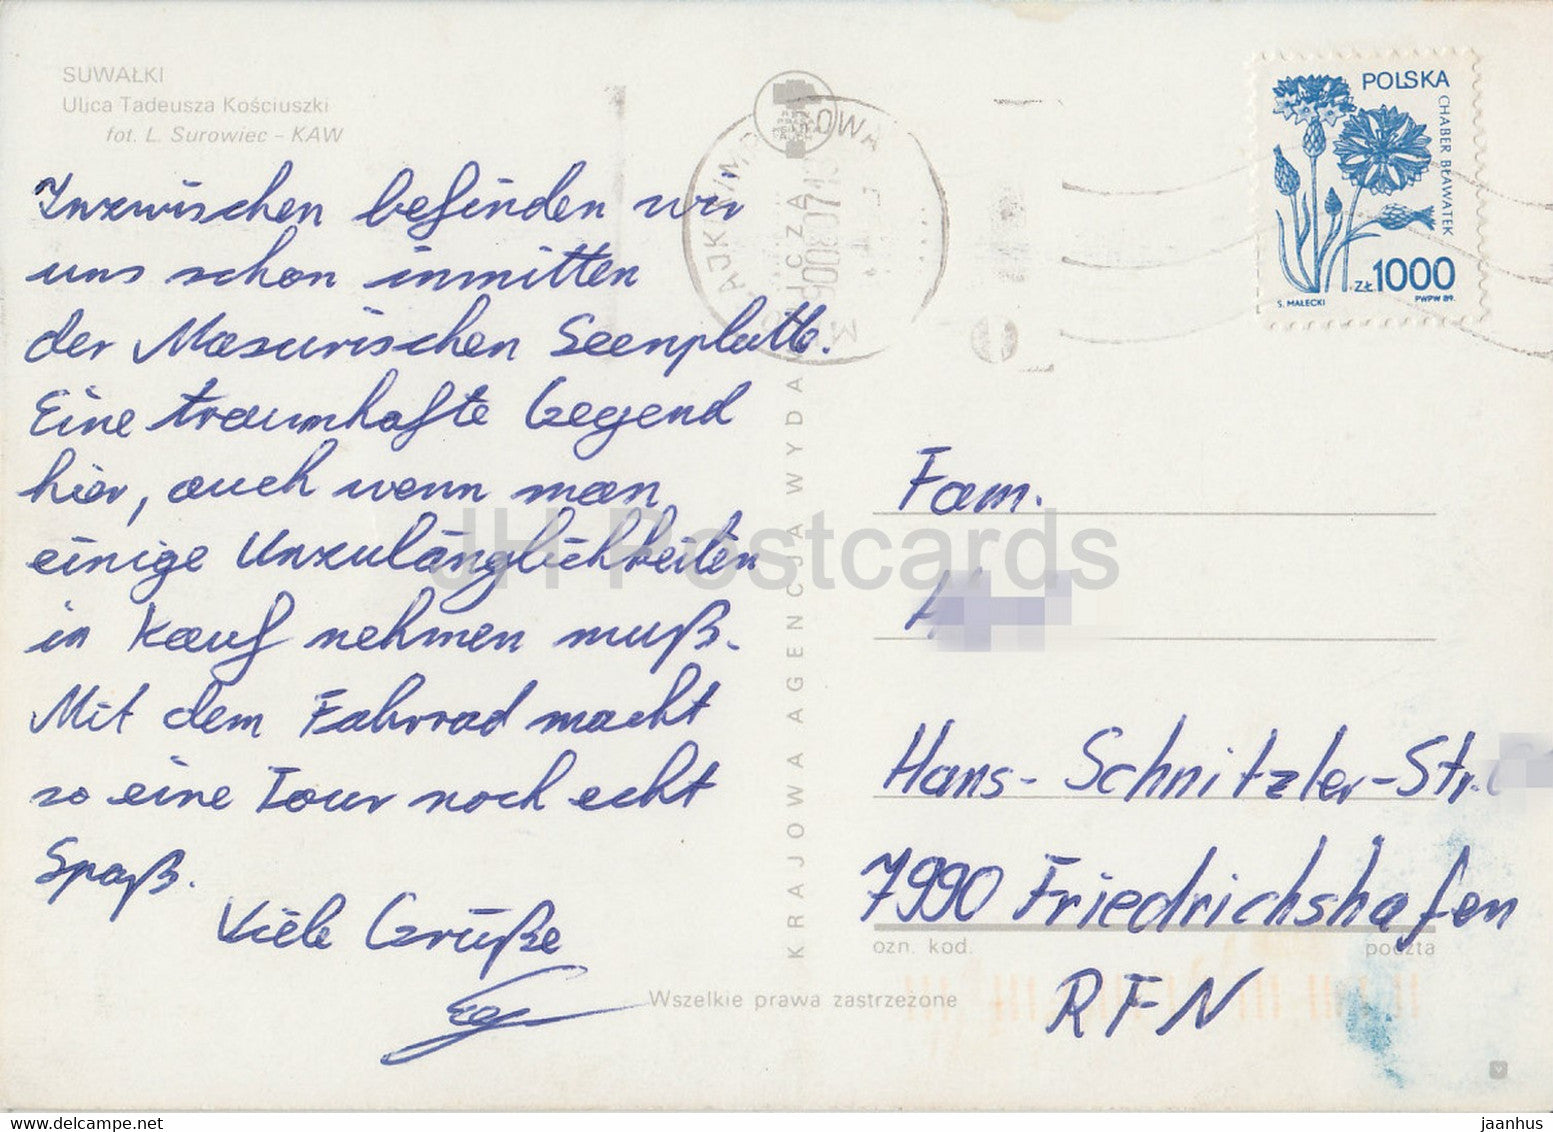 SUWAŁKI
Ulica Tadeusza Kościuszki
fot. L. Surowiec - KAW
Inzwischen befinden wir
uns schon inmitten
der Masurischen Seenplatte.
Eine traumhafte Gegend
hier, auch wenn man
einige Unzulänglichkeiten
in Kauf nehmen muß.
Mit dem Fahrrad macht
so eine Tour noch echt
Spaß.
Viele Grüße
KRAJOWA AGENCJA WYDAWNICZA
POLSKA
CHABER BŁAWATEK
ZŁ 1000
S. MAŁECKI
PWPW 89.
Fam.
Hans-Schnitzler-Str.
7990 Friedrichshafen
ozn. kod.
poczta
RFN
Wszelkie prawa zastrzeżone
JH Postcards
jaanhus.delcampe.net